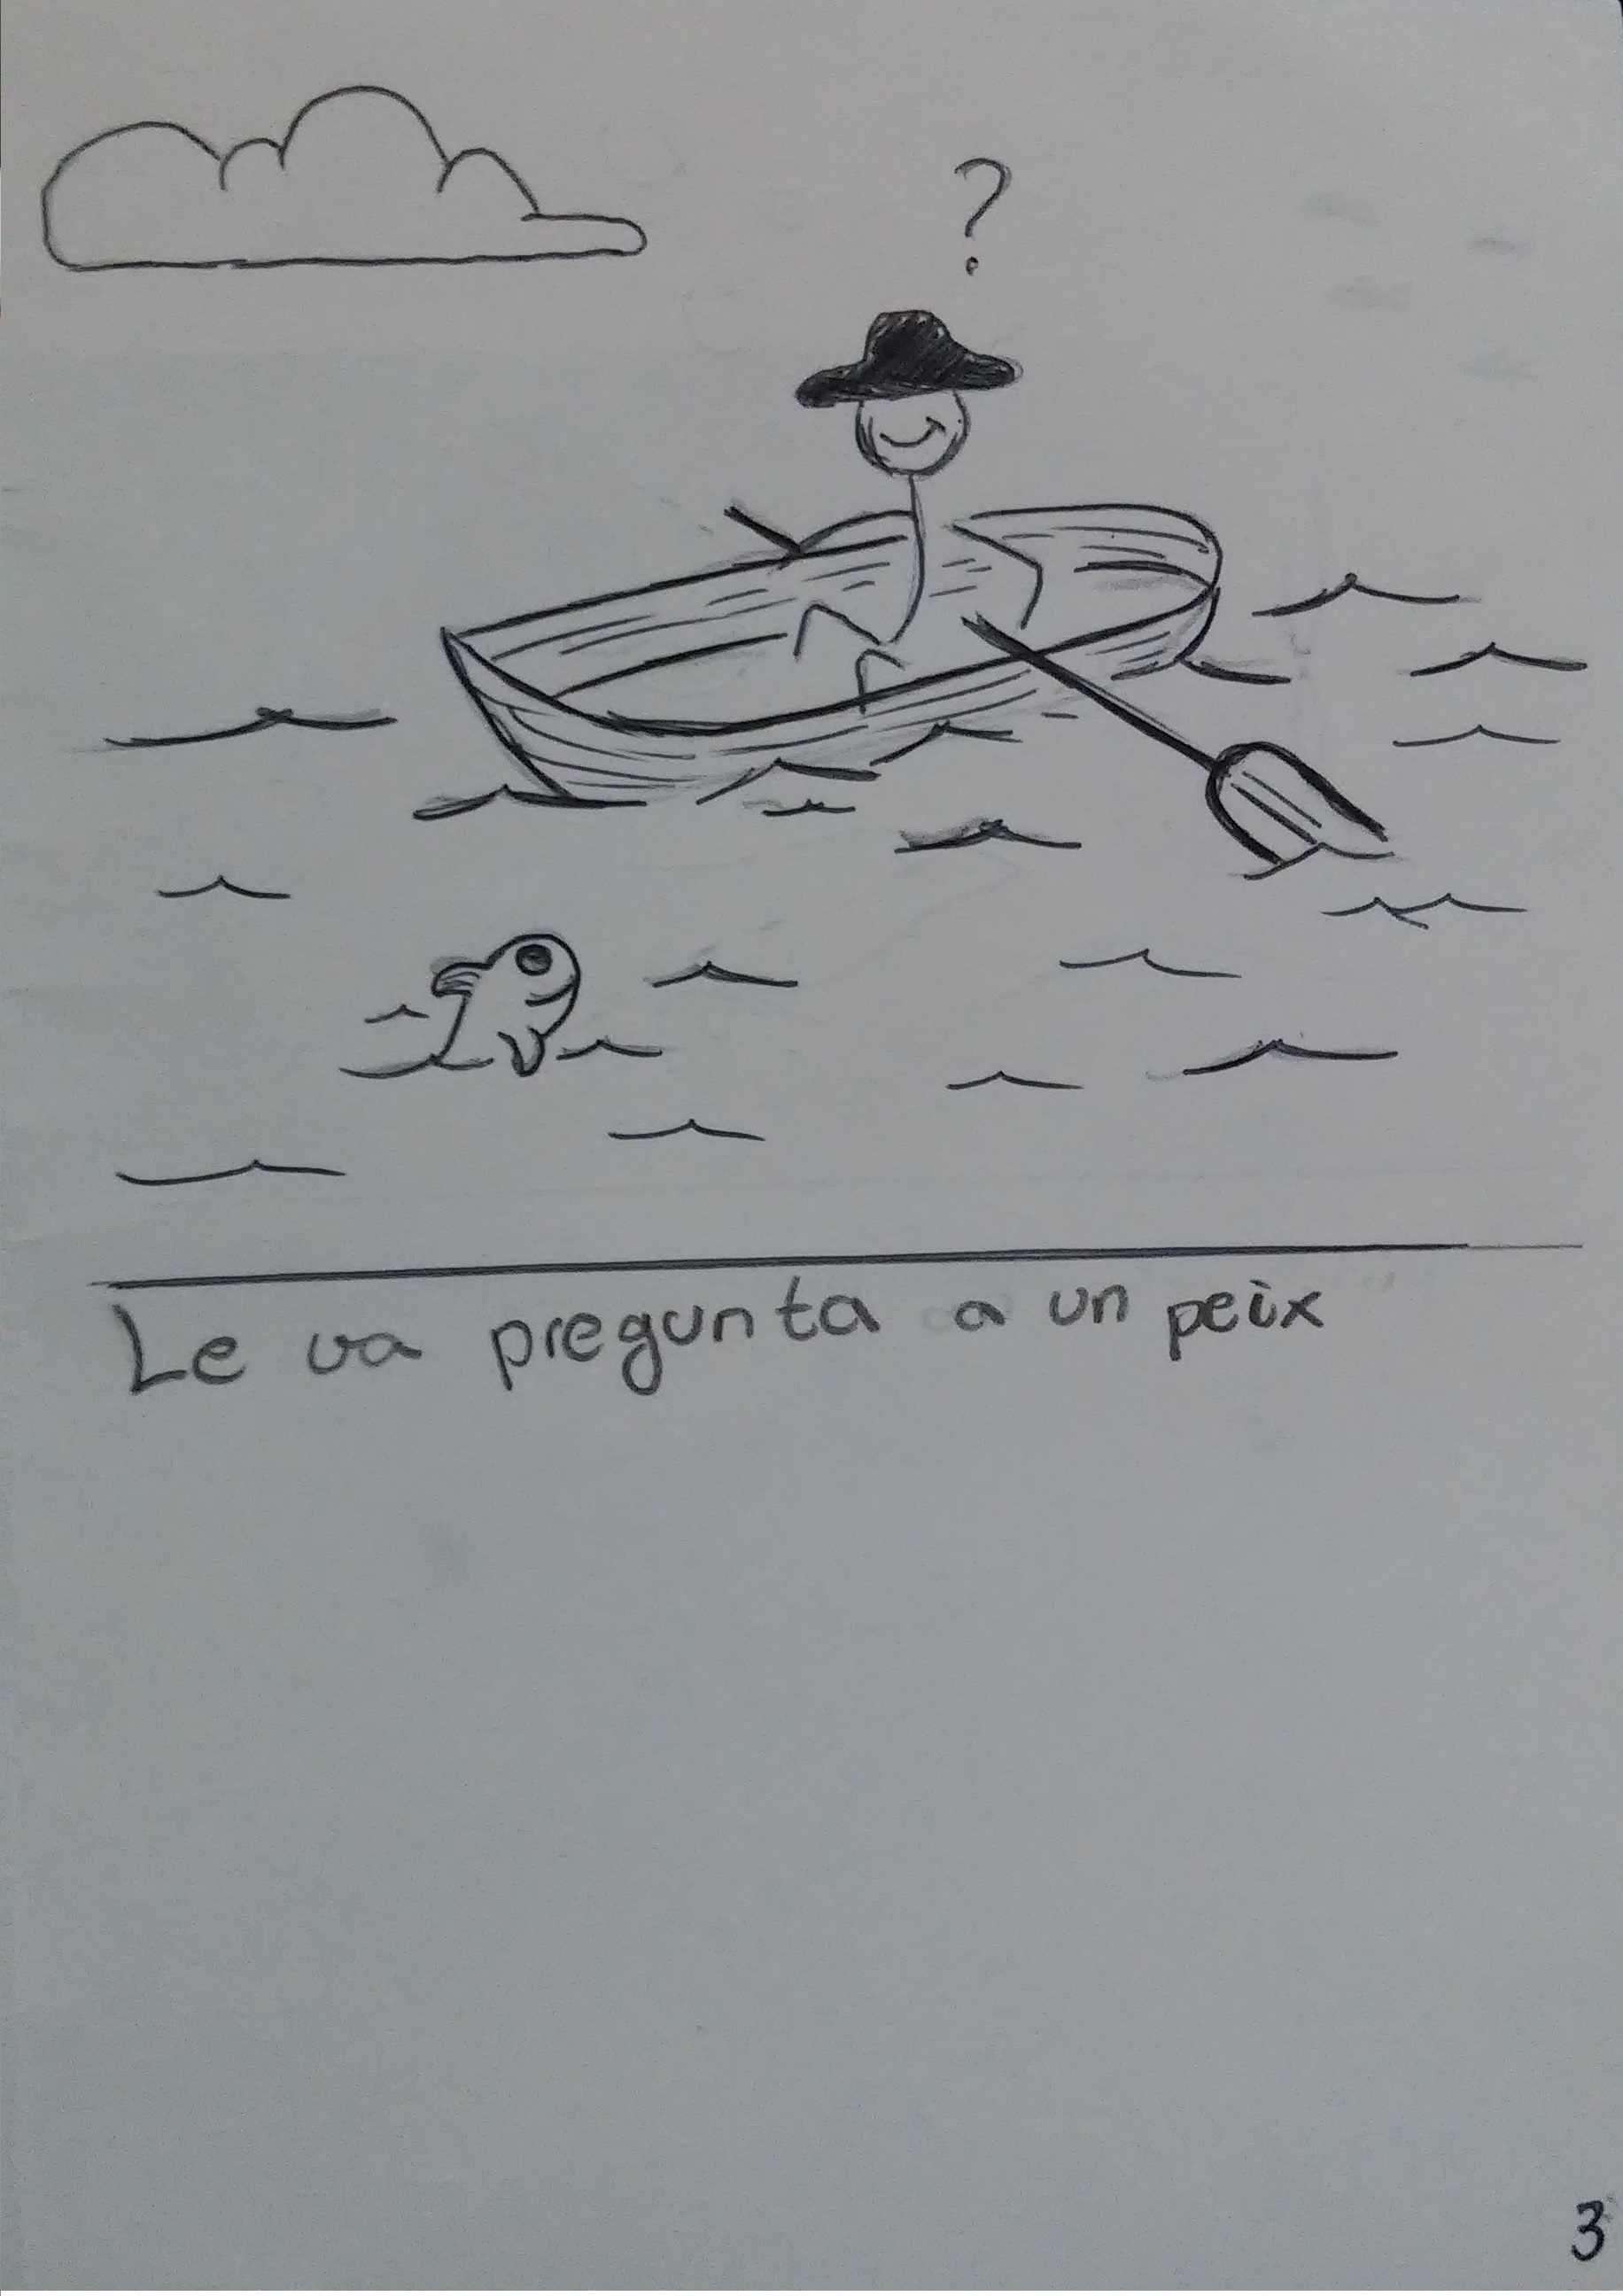 ?
Le va pregunta a un peix
3